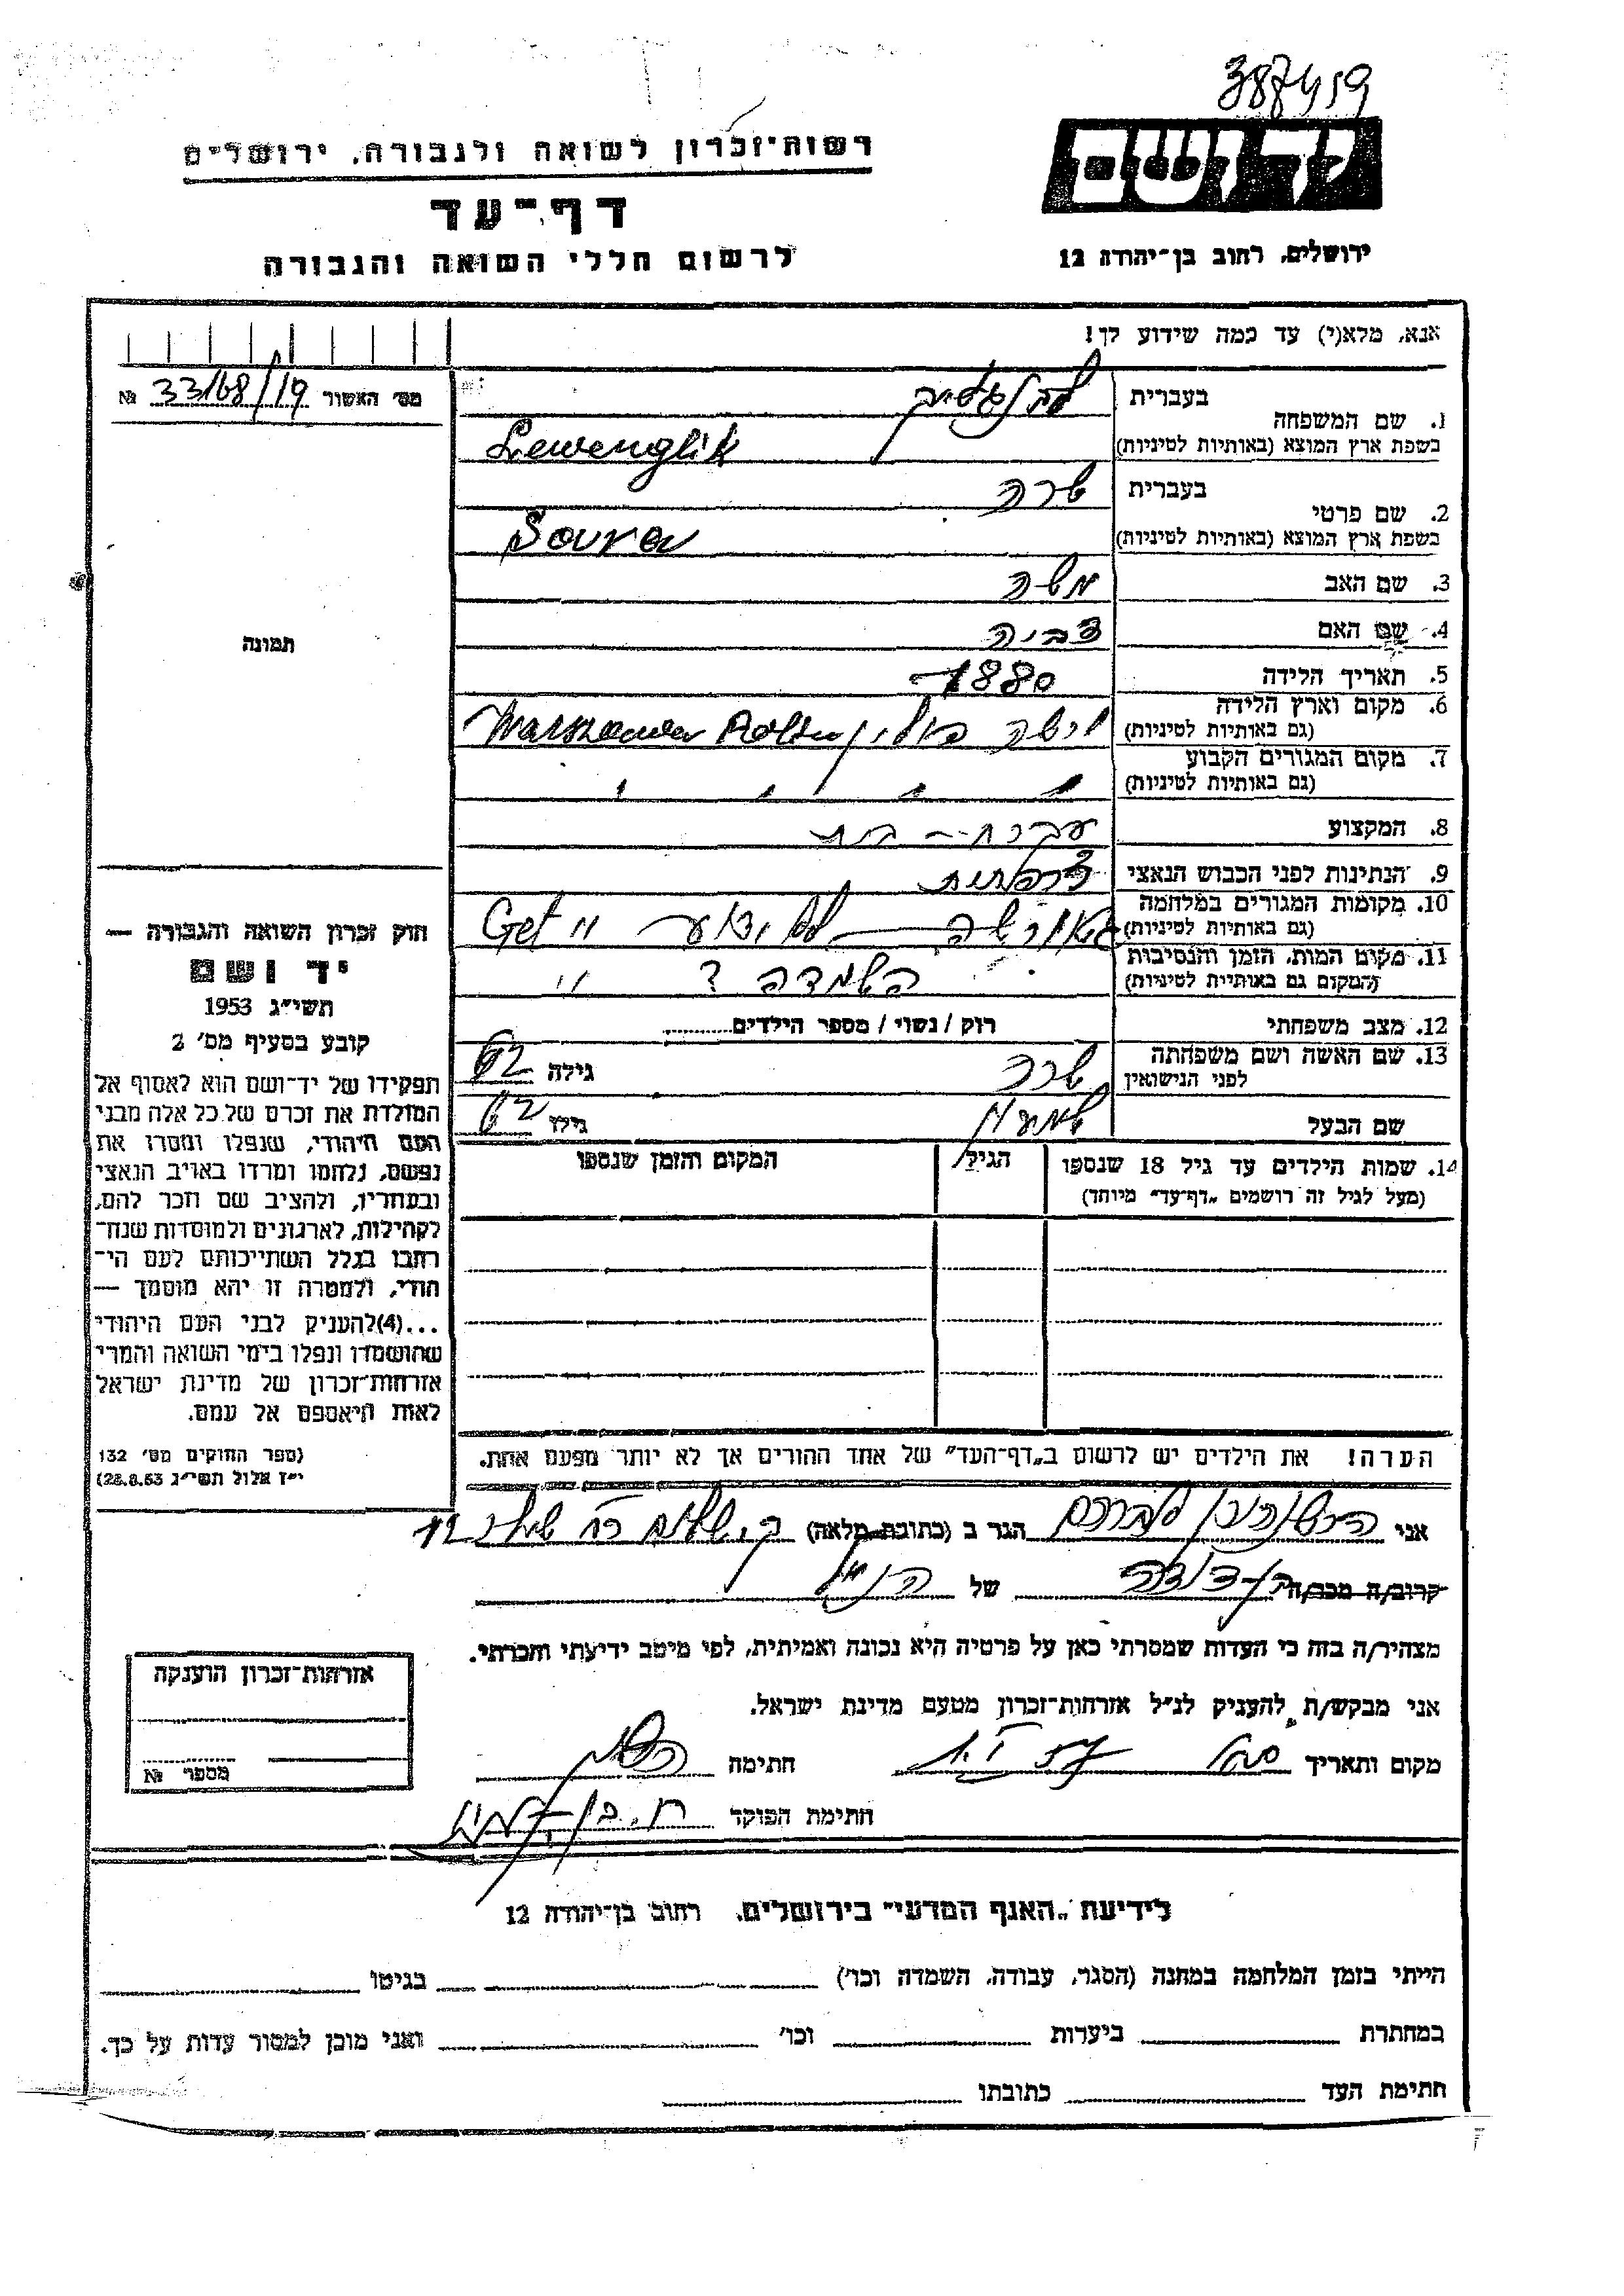 387459
רשות־זכרון לשואה ולגבורה, ירושלים
יד ושם
דף־עד
לרשום חללי השואה והגבורה
ירושלים, רחוב בן־יהודה 12
אנא, מלא(י) עד כמה שידוע לך!
מס׳ האשור 33/68/19 №
בעברית
1. שם המשפחה
בשפת ארץ המוצא (באותיות לטיניות) Lewenglik
בעברית שרה
2. שם פרטי
בשפת ארץ המוצא (באותיות לטיניות) Soura
3. שם האב משה
4. שם האם צביה
5. תאריך הלידה 1880
6. מקום וארץ הלידה
(גם באותיות לטיניות) ורשה פולין Warszawa
7. מקום המגורים הקבוע
(גם באותיות לטיניות) " " "
8. המקצוע עקרת־בית
9. הנתינות לפני הכבוש הנאצי
10. מקומות המגורים במלחמה
(גם באותיות לטיניות) Get
11. מקום המות, הזמן והנסיבות
(המקום גם באותיות לטיניות) השמדה ? "
12. מצב משפחתי רוק / נשוי / מספר הילדים
13. שם האשה ושם משפחתה
לפני הנישואין שרה גילה 62
שם הבעל שמעון גילו 62
14. שמות הילדים עד גיל 18 שנספו
(מעל לגיל זה רושמים „דף־עד" מיוחד)
הגיל
המקום והזמן שנספו
הערה! את הילדים יש לרשום ב„דף־העד" של אחד ההורים אך לא יותר מפעם אחת.
תמונה
חוק זכרון השואה והגבורה —
יד ושם
תשי״ג 1953
קובע בסעיף מס׳ 2
תפקידו של יד־ושם הוא לאסוף אל
המולדת את זכרם של כל אלה מבני
העם היהודי, שנפלו ומסרו את
נפשם, נלחמו ומרדו באויב הנאצי
ובעוזריו, ולהציב שם וזכר להם,
לקהילות, לארגונים ולמוסדות שנח־
רבו בגלל השתייכותם לעם הי־
הודי, ולמטרה זו יהא מוסמך —
...(4)להעניק לבני העם היהודי
שהושמדו ונפלו בימי השואה והמרי
אזרחות־זכרון של מדינת ישראל
לאות היאספם אל עמם.
(ספר החוקים מס׳ 132
י״ז אלול תשי״ג 28.8.53)
אני אברהם הגר ב (כתובת מלאה)
קרוב/ה מכר/ה בן־דודה של הנ״ל
מצהיר/ה בזה כי העדות שמסרתי כאן על פרטיה היא נכונה ואמיתית, לפי מיטב ידיעתי והכרתי.
אני מבקש/ת להעניק לנ״ל אזרחות־זכרון מטעם מדינת ישראל.
מקום ותאריך חתימה
חתימת הפוקד
אזרחות־זכרון הוענקה
מספר №
לידיעת „האגף המדעי" בירושלים, רחוב בן־יהודה 12
הייתי בזמן המלחמה במחנה (הסגר, עבודה, השמדה וכו׳) בגיטו
במחתרת ביערות וכו׳ ואני מוכן למסור עדות על כך.
חתימת העד כתובתו